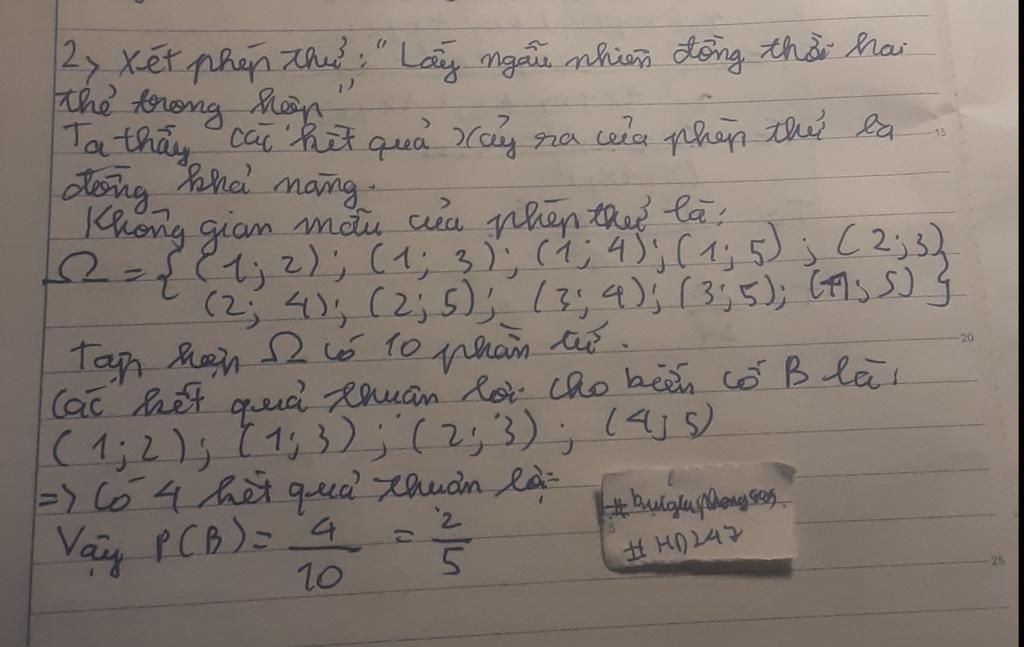 2, Xét phép thử: "Lấy ngẫu nhiên đồng thời hai
thẻ trong hộp"
Ta thấy các kết quả xảy ra của phép thử là
đồng khả năng.
Không gian mẫu của phép thử là:
Ω = { (1; 2); (1; 3); (1; 4); (1; 5); (2; 3)
(2; 4); (2; 5); (3; 4); (3; 5); (4; 5) }
Tập hợp Ω có 10 phần tử.
Các kết quả thuận lợi cho biến cố B là:
(1; 2); (1; 3); (2; 3); (4; 5)
=> Có 4 kết quả thuận lợi
Vậy P(B) = 4/10 = 2/5
# HD247
15
20
25